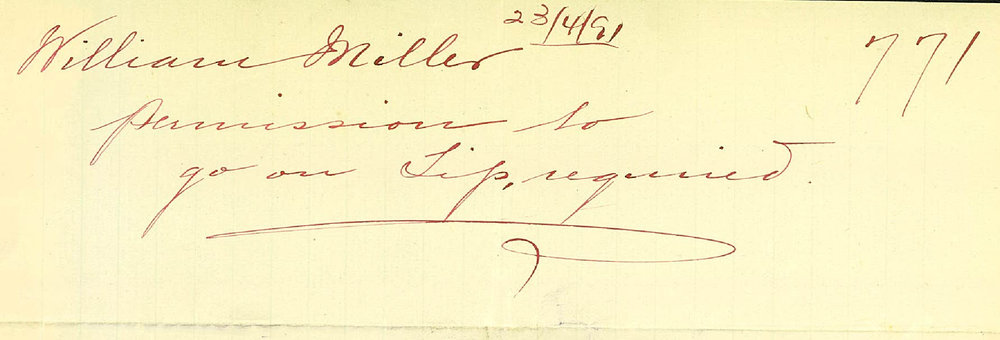 23/4/91
William Miller 771
permission to
go on Tip, required.